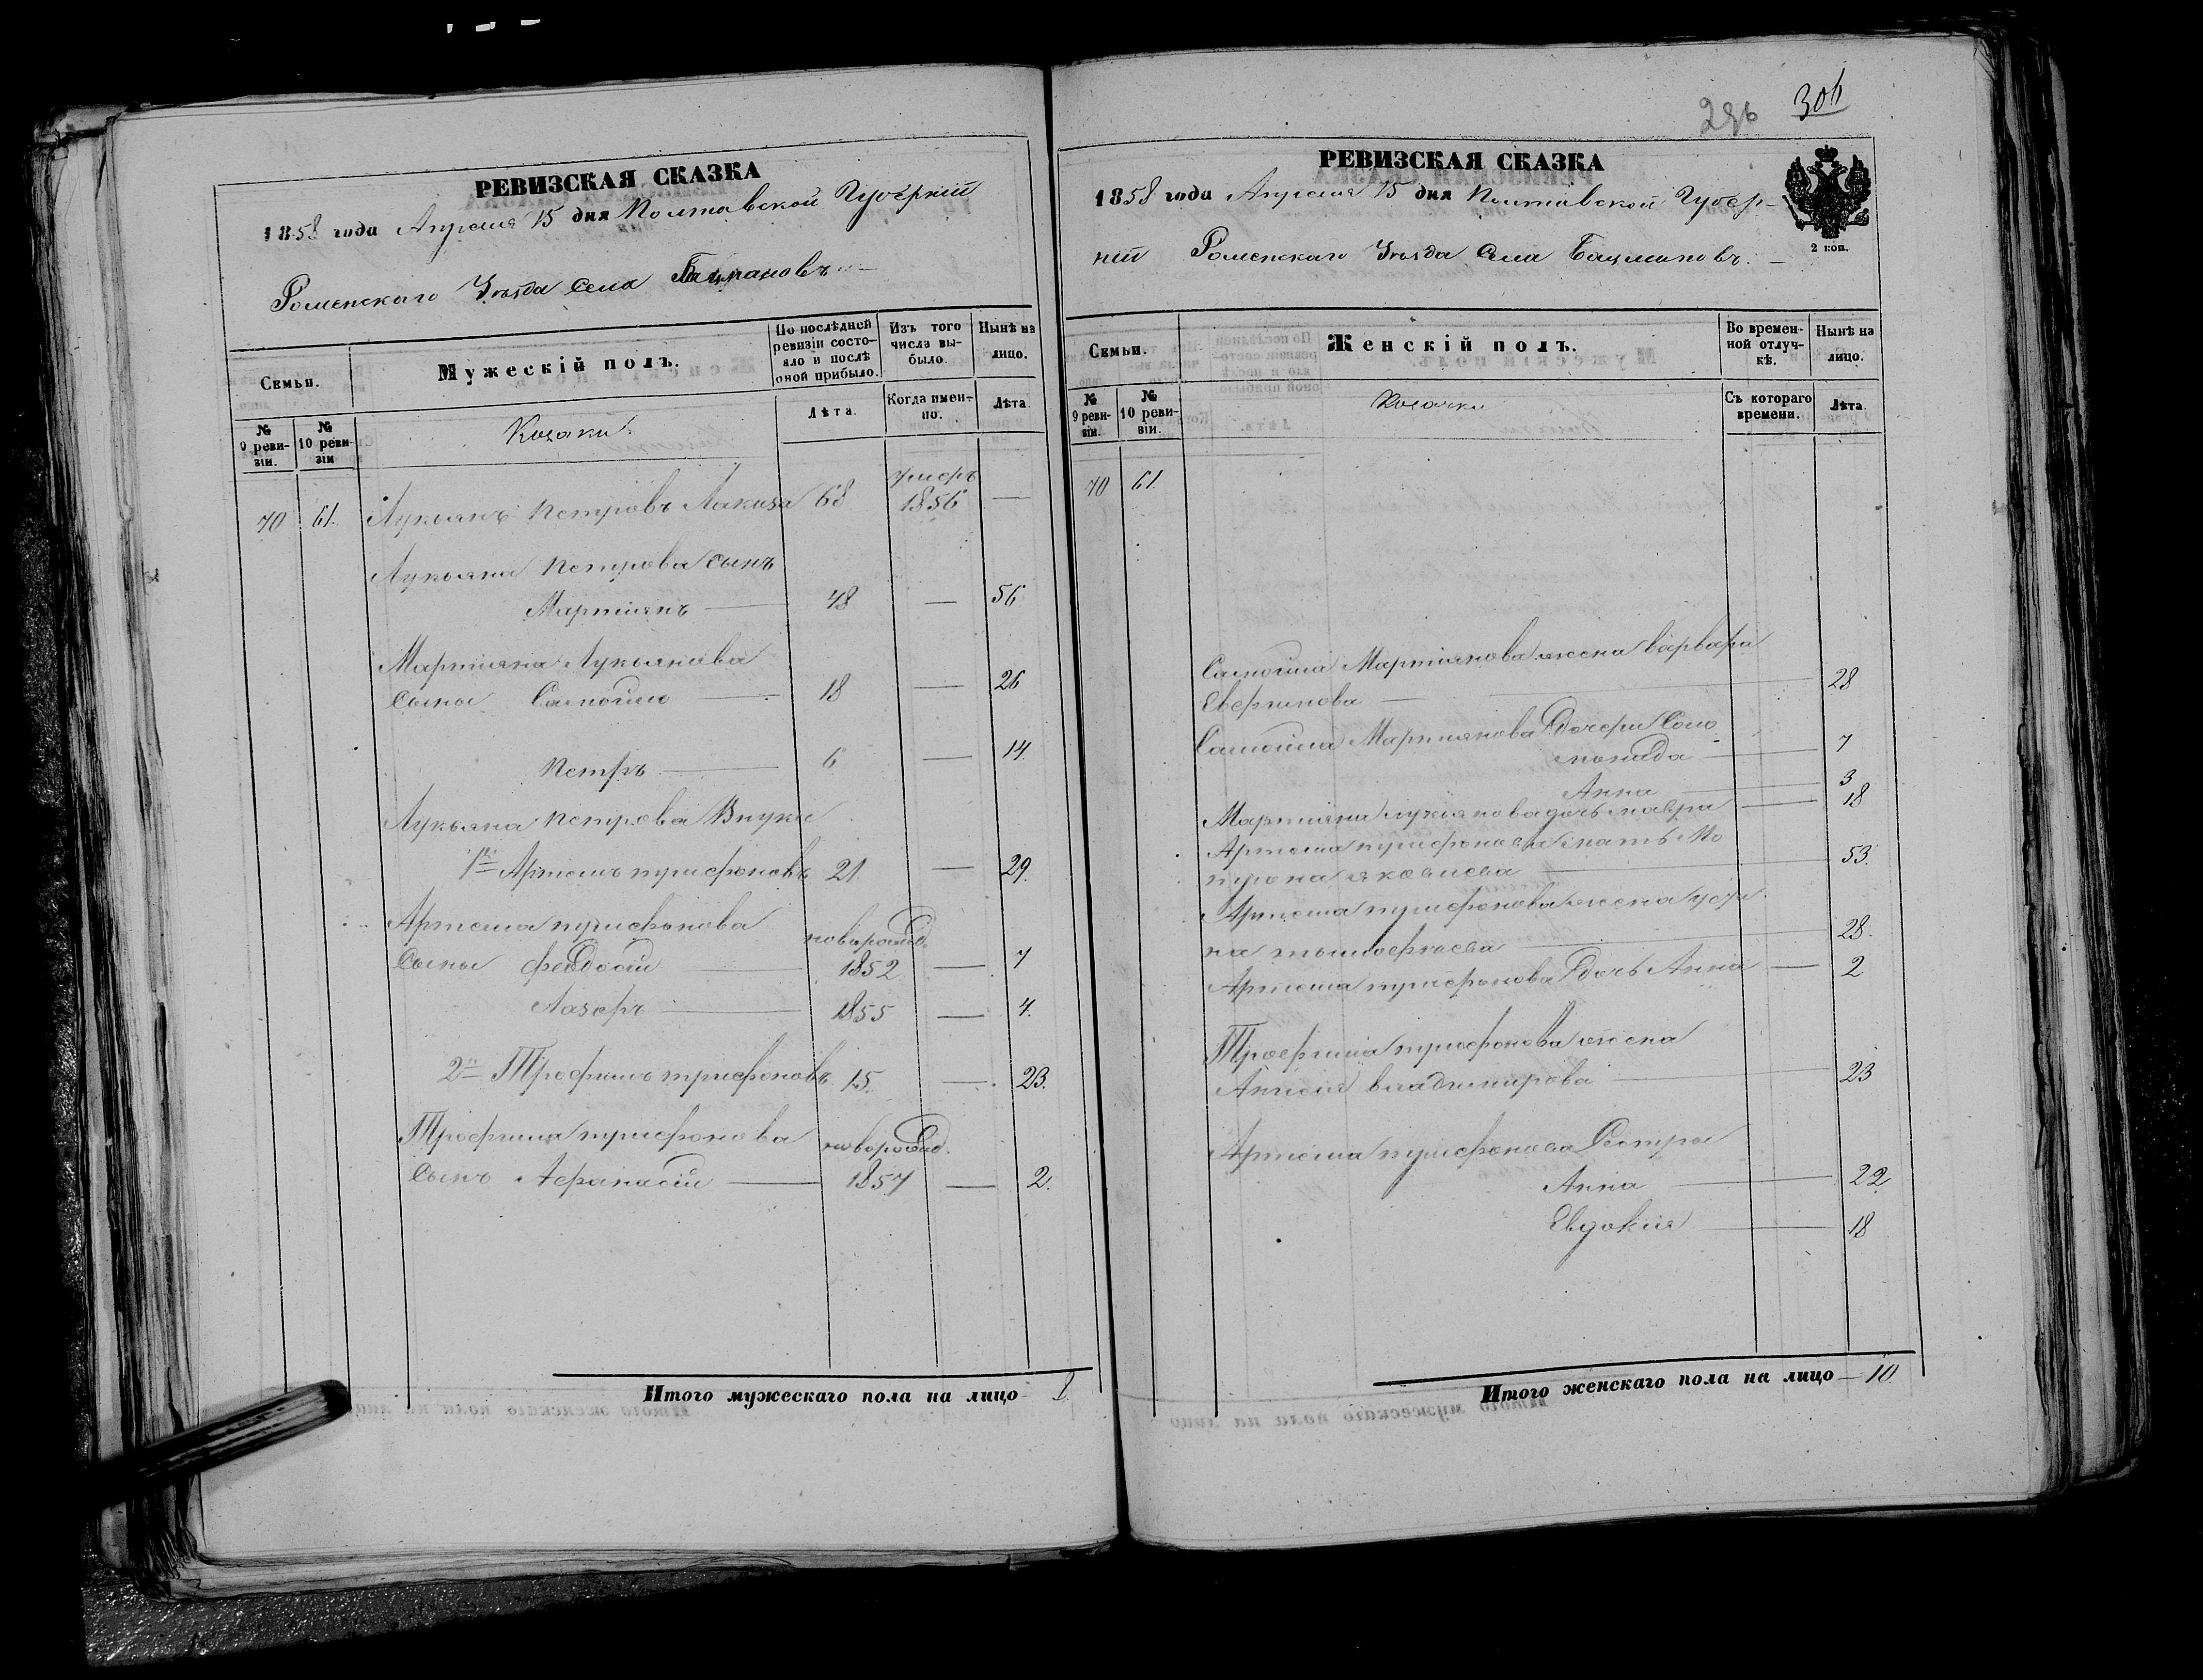 РЕВИЗСКАЯ СКАЗКА
1858 года Апреля 15 дня Полтавской Губерніи
Роменского Уѣзда Села Бацмановъ
Семьи.
Мужескій полъ.
По послѣдней ревизіи состояло и послѣ оной прибыло.
Изъ того числа выбыло.
Нынѣ на лицо.
№ 9 ревизіи.
№ 10 ревизіи
Козаки
Лѣта.
Когда именно.
Лѣта.
70 61. Лукьянъ Петровъ 68 1856 —
Лукьяна Петрова сынъ
Мартіянъ — 48 — 56
Мартіяна Лукьянова
сыны Самойло — 18 — 26
Петръ — 6 — 14.
Лукьяна Петрова Внуки
1й Артемъ Трифоновъ 21. — 29.
Артема Трифонова новорожд.
Сыны Феодосій — 1852 — 7
Лазеръ — 1855 — 4.
2й Трофимъ Трифоновъ 15. — 23.
Трофима Трифонова новорожд.
Сынъ Афанасій — 1857 — 2.
Итого мужескаго пола на лицо 8
296 306
РЕВИЗСКАЯ СКАЗКА
1858 года Апреля 15 дня Полтавской Губер-
ніи Роменскаго Уѣзда Села Бацмановъ. —
2 коп.
Семьи.
Женскій полъ.
Во временной отлучкѣ.
Нынѣ на лицо.
№ 9 ревизіи.
№ 10 ревизіи.
Козачки
Съ котораго времени.
Лѣта.
70 61.
Самойла Мартіянова жена Варвара
— 28
Самойла Мартіянова Дочери Соло
монида — 7
Анна — 3
Мартіяна Лукьянова дочь Мавра — 18
Артема Трифонова мать Мо
трона Яковлева — 53.
Артема Трифонова жена Усти
на Тимофѣева — 28.
Артема Трифонова Дочь Анна — 2
Трофима Трифонова жена
Анисія Владимирова — 23
Артема Трифонова Сестры
Анна — 22
Евдокія — 18
Итого женскаго пола на лицо — 10.